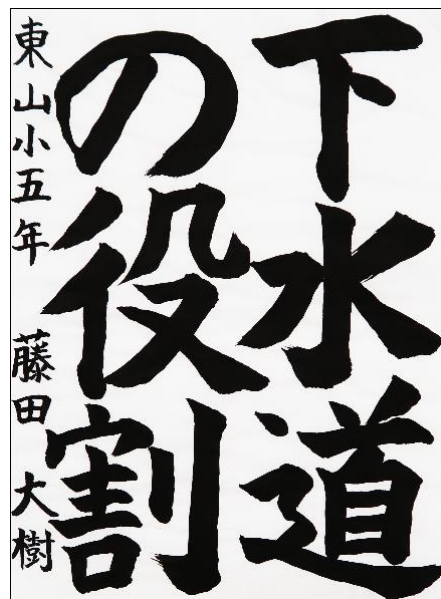 下水道
の役割
東山小五年 藤田 大樹